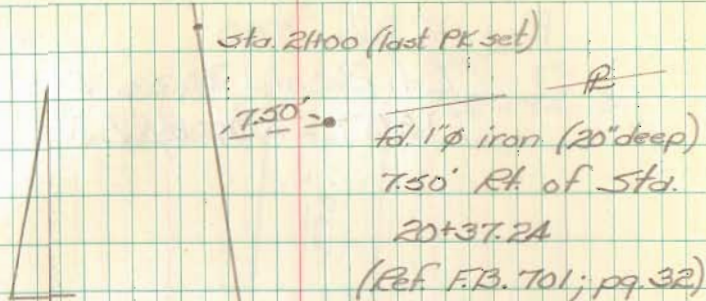 Sta. 21+00 (last PK set)
7.50'
PL
fd. 1"φ iron (20" deep)
7.50' Rt. of Sta.
20+37.24
(Ref. F.B. 701; pg. 32)